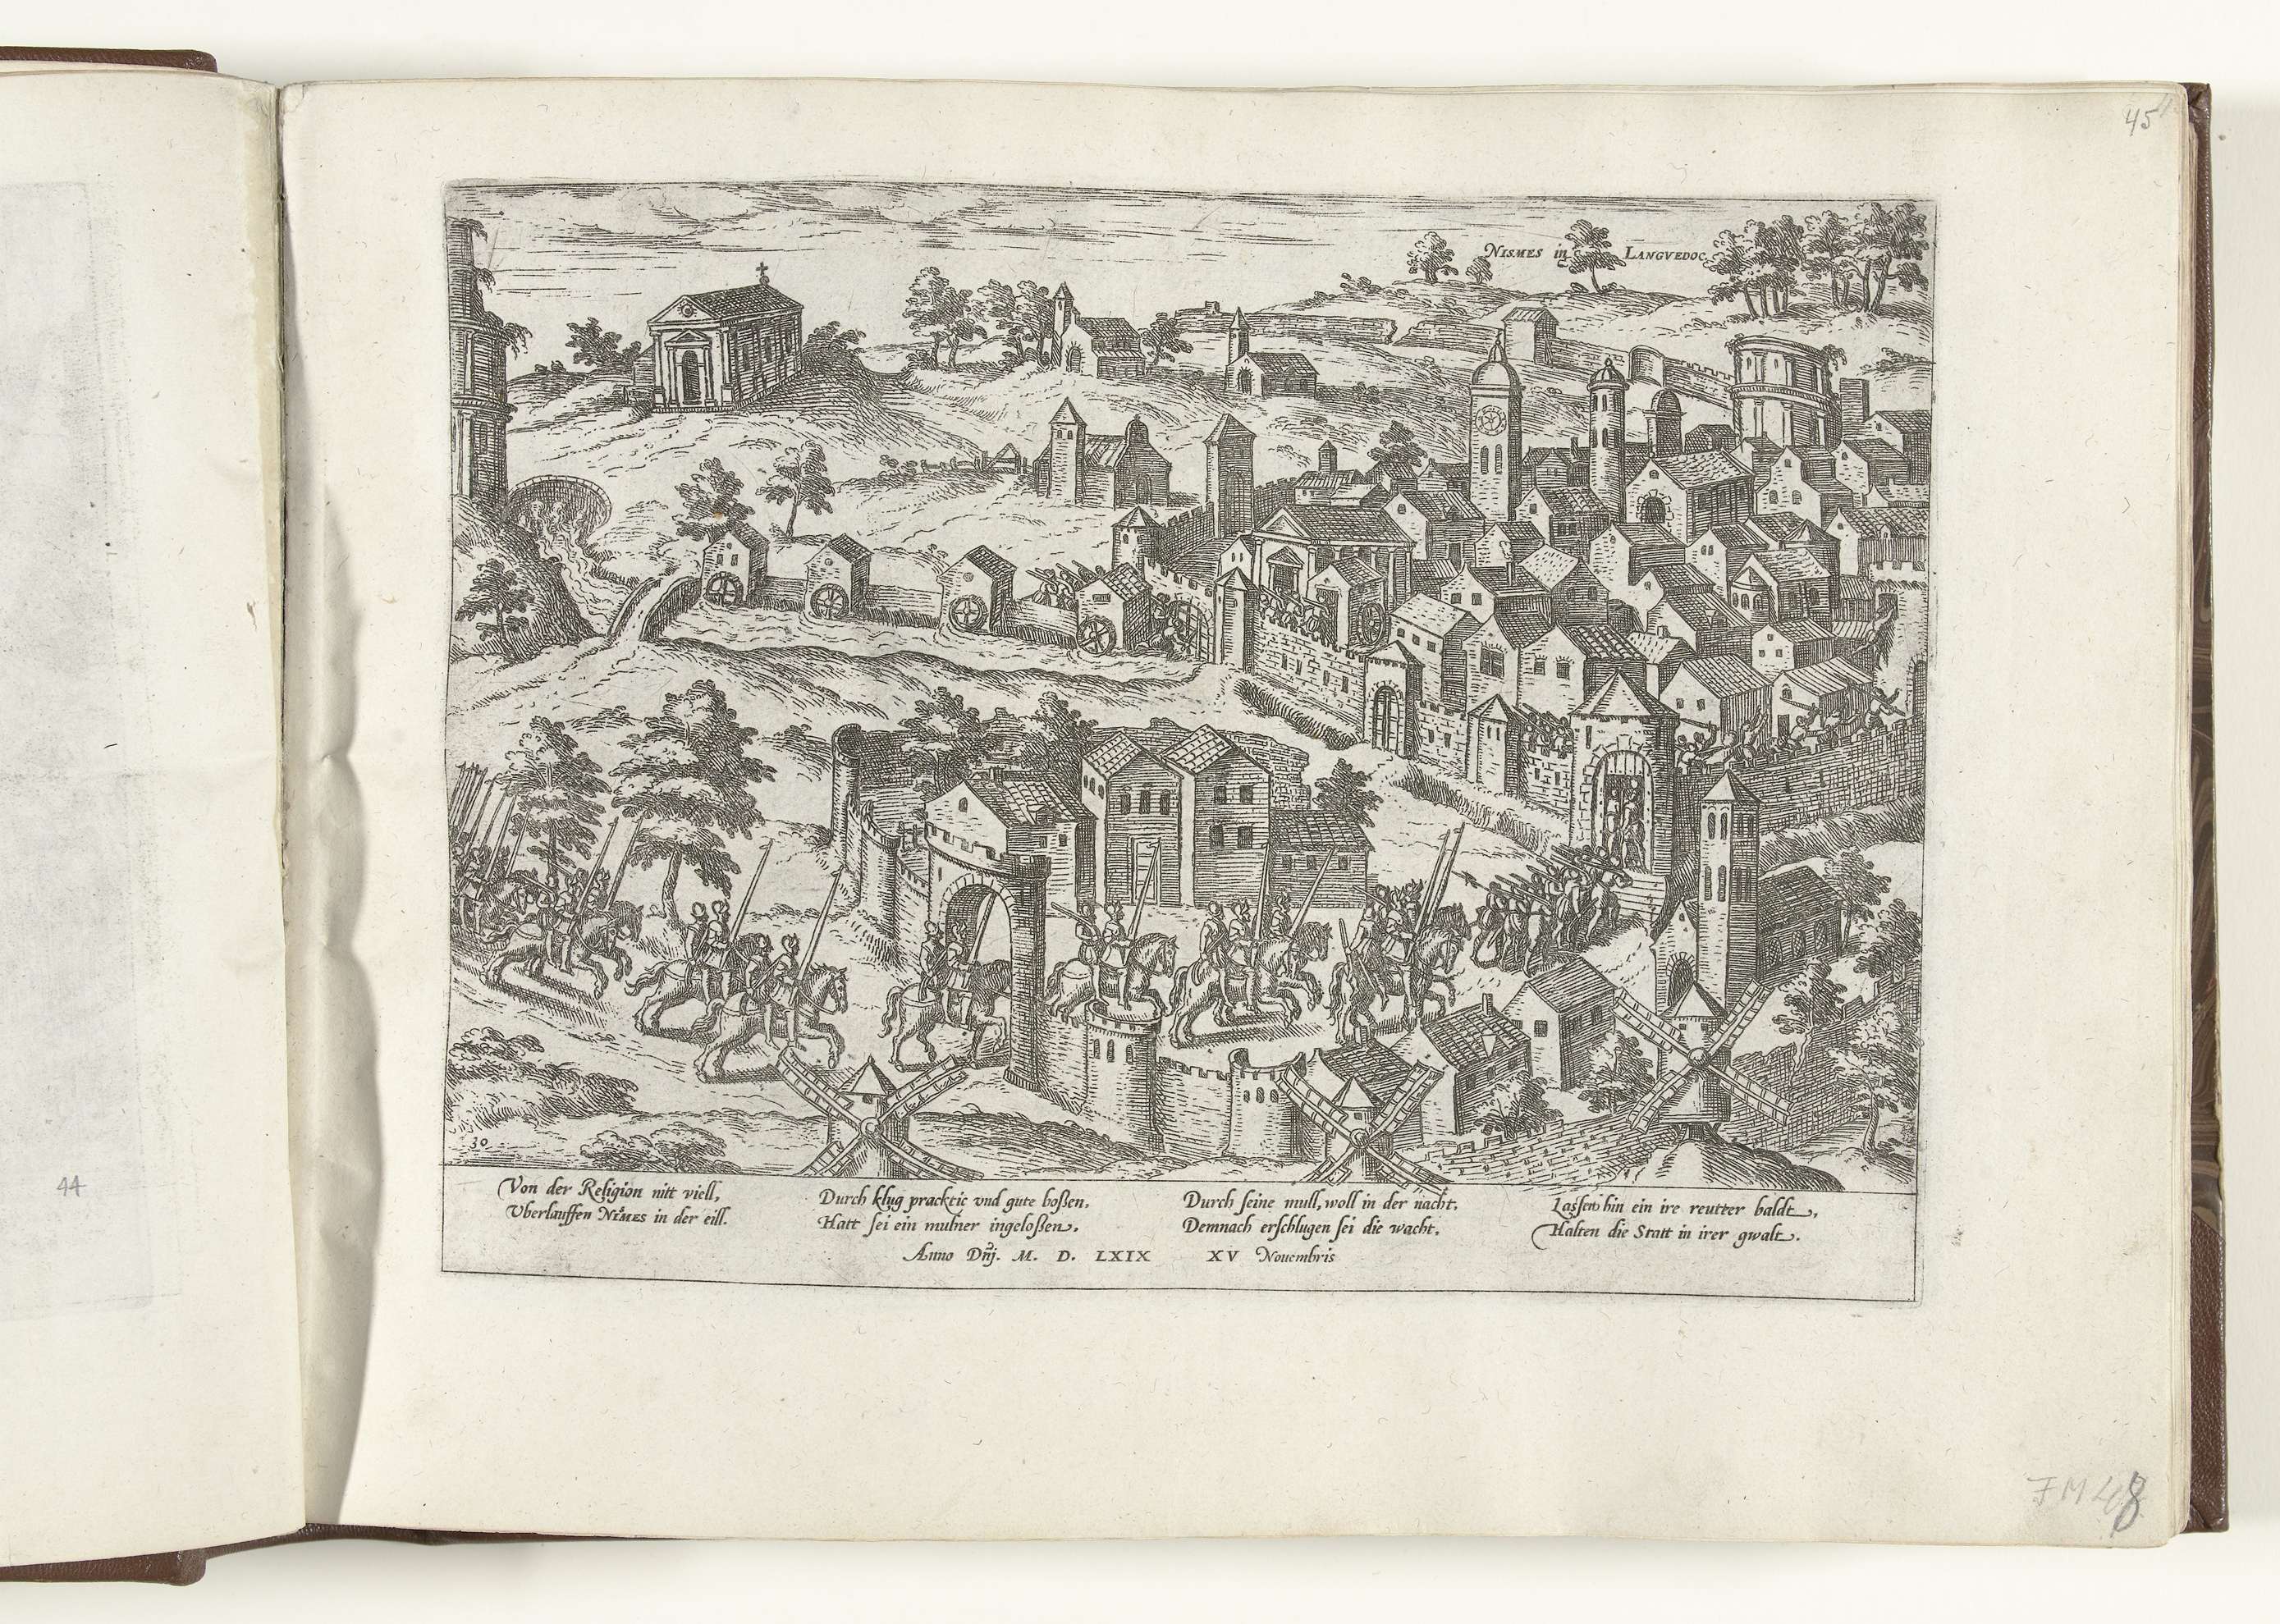 45
NISMES in LANGVEDOC
30
Von der Religion nitt viell,
Vberlauffen NIMES in der eill.
Durch klug practic vnd gute boßen,
Hatt sei ein mulner ingeloßen,
Durch seine mull, woll in der nacht,
Demnach erschlugen sei die wacht,
Lassen hin ein ire reutter baldt,
Halten die Statt in irer gwalt.
Anno Dnj. M. D. LXIX XV Nouembris
44
FM 48